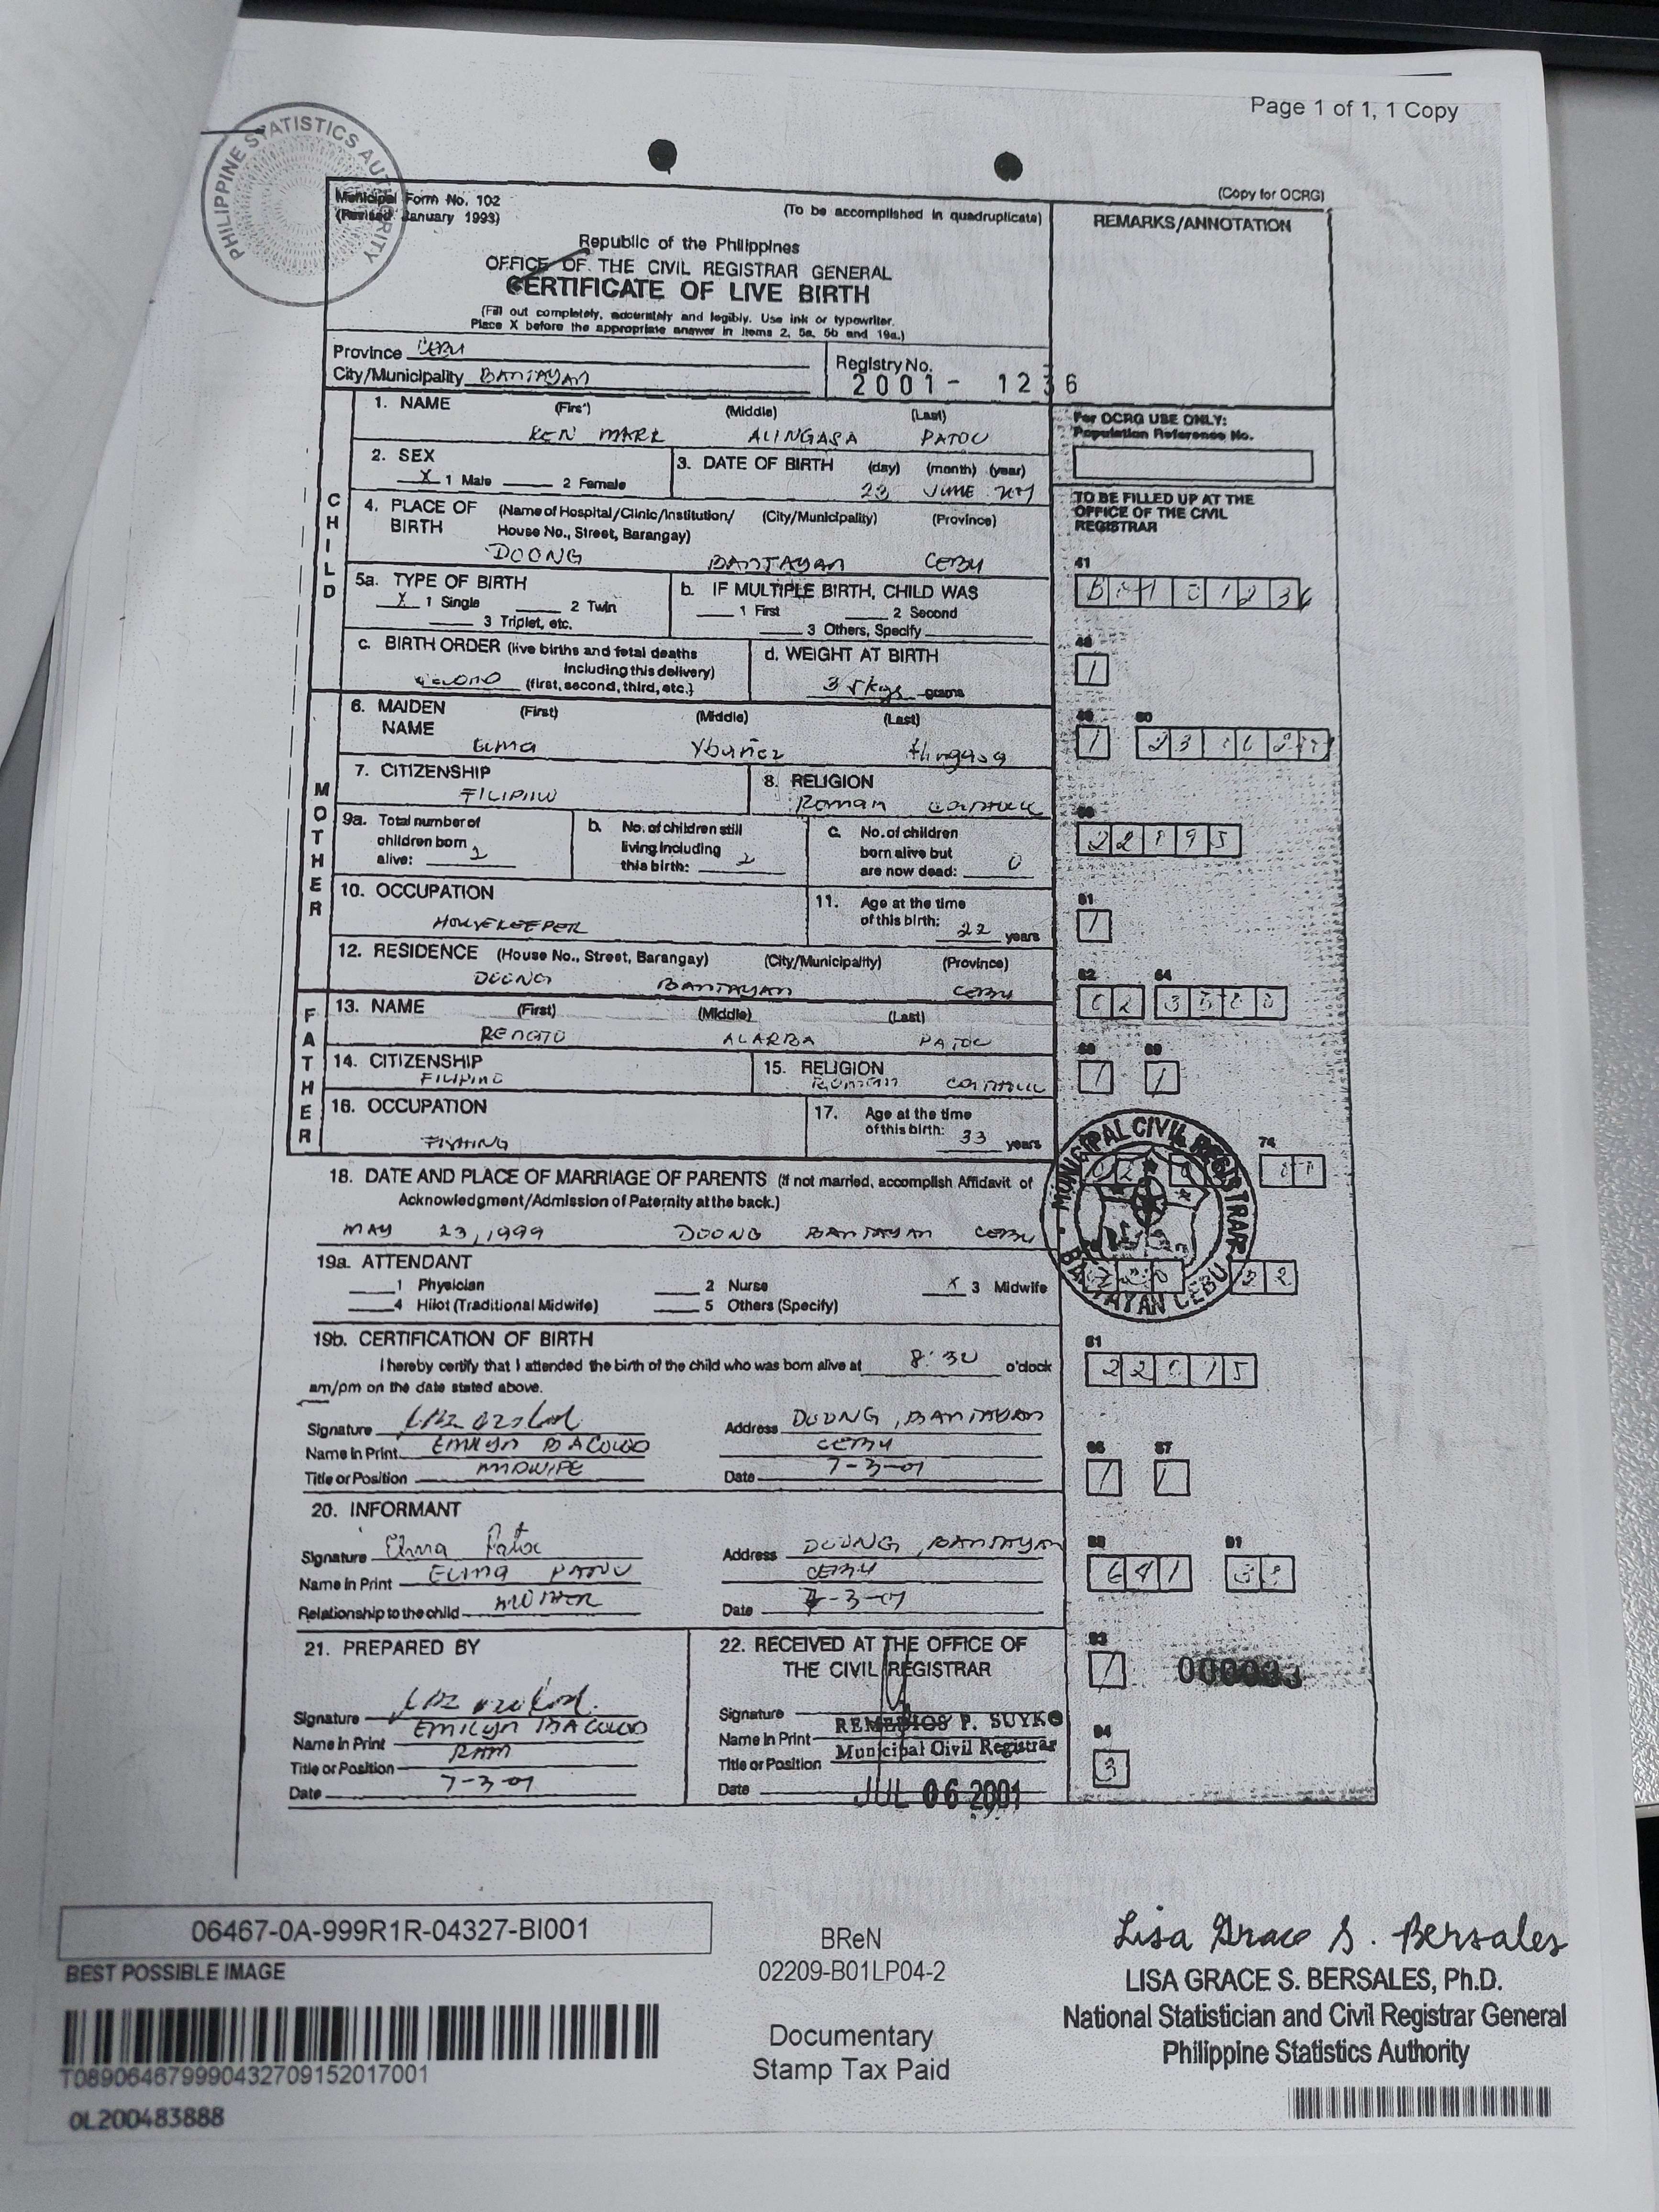 Page 1 of 1, 1 Copy
PHILIPPINE STATISTICS AUTHORITY
(Copy for OCRG)
Municipal Form No. 102
(Revised January 1993)
(To be accomplished in quadruplicate)
REMARKS/ANNOTATION
Republic of the Philippines
OFFICE OF THE CIVIL REGISTRAR GENERAL
CERTIFICATE OF LIVE BIRTH
(Fill out completely, accurately and legibly. Use ink or typewriter.
Place X before the appropriate answer in items 2, 5a, 5b and 19a.)
Province CEBU
City/Municipality BANTAYAN
Registry No.
2001- 1236
CHILD
1. NAME (First) (Middle) (Last)
KEN MARK ALINGASA PATOU
For OCRG USE ONLY:
Population Reference No.
2. SEX
X 1 Male 2 Female
3. DATE OF BIRTH (day) (month) (year)
23 JUNE
TO BE FILLED UP AT THE
OFFICE OF THE CIVIL
REGISTRAR
4. PLACE OF BIRTH (Name of Hospital/Clinic/Institution/ (City/Municipality) (Province)
House No., Street, Barangay)
DOONG BANTAYAN CEBU
41
5a. TYPE OF BIRTH
X 1 Single 2 Twin
3 Triplet, etc.
b. IF MULTIPLE BIRTH, CHILD WAS
1 First 2 Second
3 Others, Specify
c. BIRTH ORDER (live births and fetal deaths
including this delivery)
(first, second, third, etc.)
d. WEIGHT AT BIRTH
grams
1
MOTHER
6. MAIDEN NAME (First) (Middle) (Last)
Elma Ybañez Alingasa
1
7. CITIZENSHIP
FILIPINO
8. RELIGION
Roman
9a. Total number of
children born
alive: 2
b. No. of children still
living including
this birth: 2
c. No. of children
born alive but
are now dead: 0
22195
10. OCCUPATION
HOUSEKEEPER
11. Age at the time
of this birth: 22 years
1
12. RESIDENCE (House No., Street, Barangay) (City/Municipality) (Province)
DOONG BANTAYAN CEBU
62 64
FATHER
13. NAME (First) (Middle) (Last)
RENATO ALARBA
14. CITIZENSHIP
FILIPINO
15. RELIGION
ROMAN
1 1
16. OCCUPATION
FISHING
17. Age at the time
of this birth: 33 years
74
MUNICIPAL CIVIL REGISTRAR
BANTAYAN CEBU
18. DATE AND PLACE OF MARRIAGE OF PARENTS (If not married, accomplish Affidavit of
Acknowledgment/Admission of Paternity at the back.)
MAY 23, 1999 DOONG BANTAYAN CEBU
19a. ATTENDANT
1 Physician 2 Nurse X 3 Midwife
4 Hilot (Traditional Midwife) 5 Others (Specify)
22
19b. CERTIFICATION OF BIRTH
I hereby certify that I attended the birth of the child who was born alive at 8:30 o'clock
am/pm on the date stated above.
81
Signature
Address DOONG, BANTAYAN
CEBU
Name in Print EMILYN BACOLOD
Title or Position MIDWIFE
Date 7-3-01
86 87
1 1
20. INFORMANT
Signature Elma
Address DOONG, BANTAYAN
CEBU
Name in Print ELMA PATOU
Relationship to the child MOTHER
Date 7-3-01
91
641
21. PREPARED BY
22. RECEIVED AT THE OFFICE OF
THE CIVIL REGISTRAR
93
1
Signature
Name in Print EMILYN BACOLOD
Title or Position
Date 7-3-01
Signature
Name in Print REMEDIOS P. SUYKO
Title or Position Municipal Civil Registrar
Date JUL 06 2001
94
3
06467-0A-999R1R-04327-BI001
BEST POSSIBLE IMAGE
T089064679990432709152017001
0L200483888
BReN
02209-B01LP04-2
Documentary
Stamp Tax Paid
Lisa Grace S. Bersales
LISA GRACE S. BERSALES, Ph.D.
National Statistician and Civil Registrar General
Philippine Statistics Authority